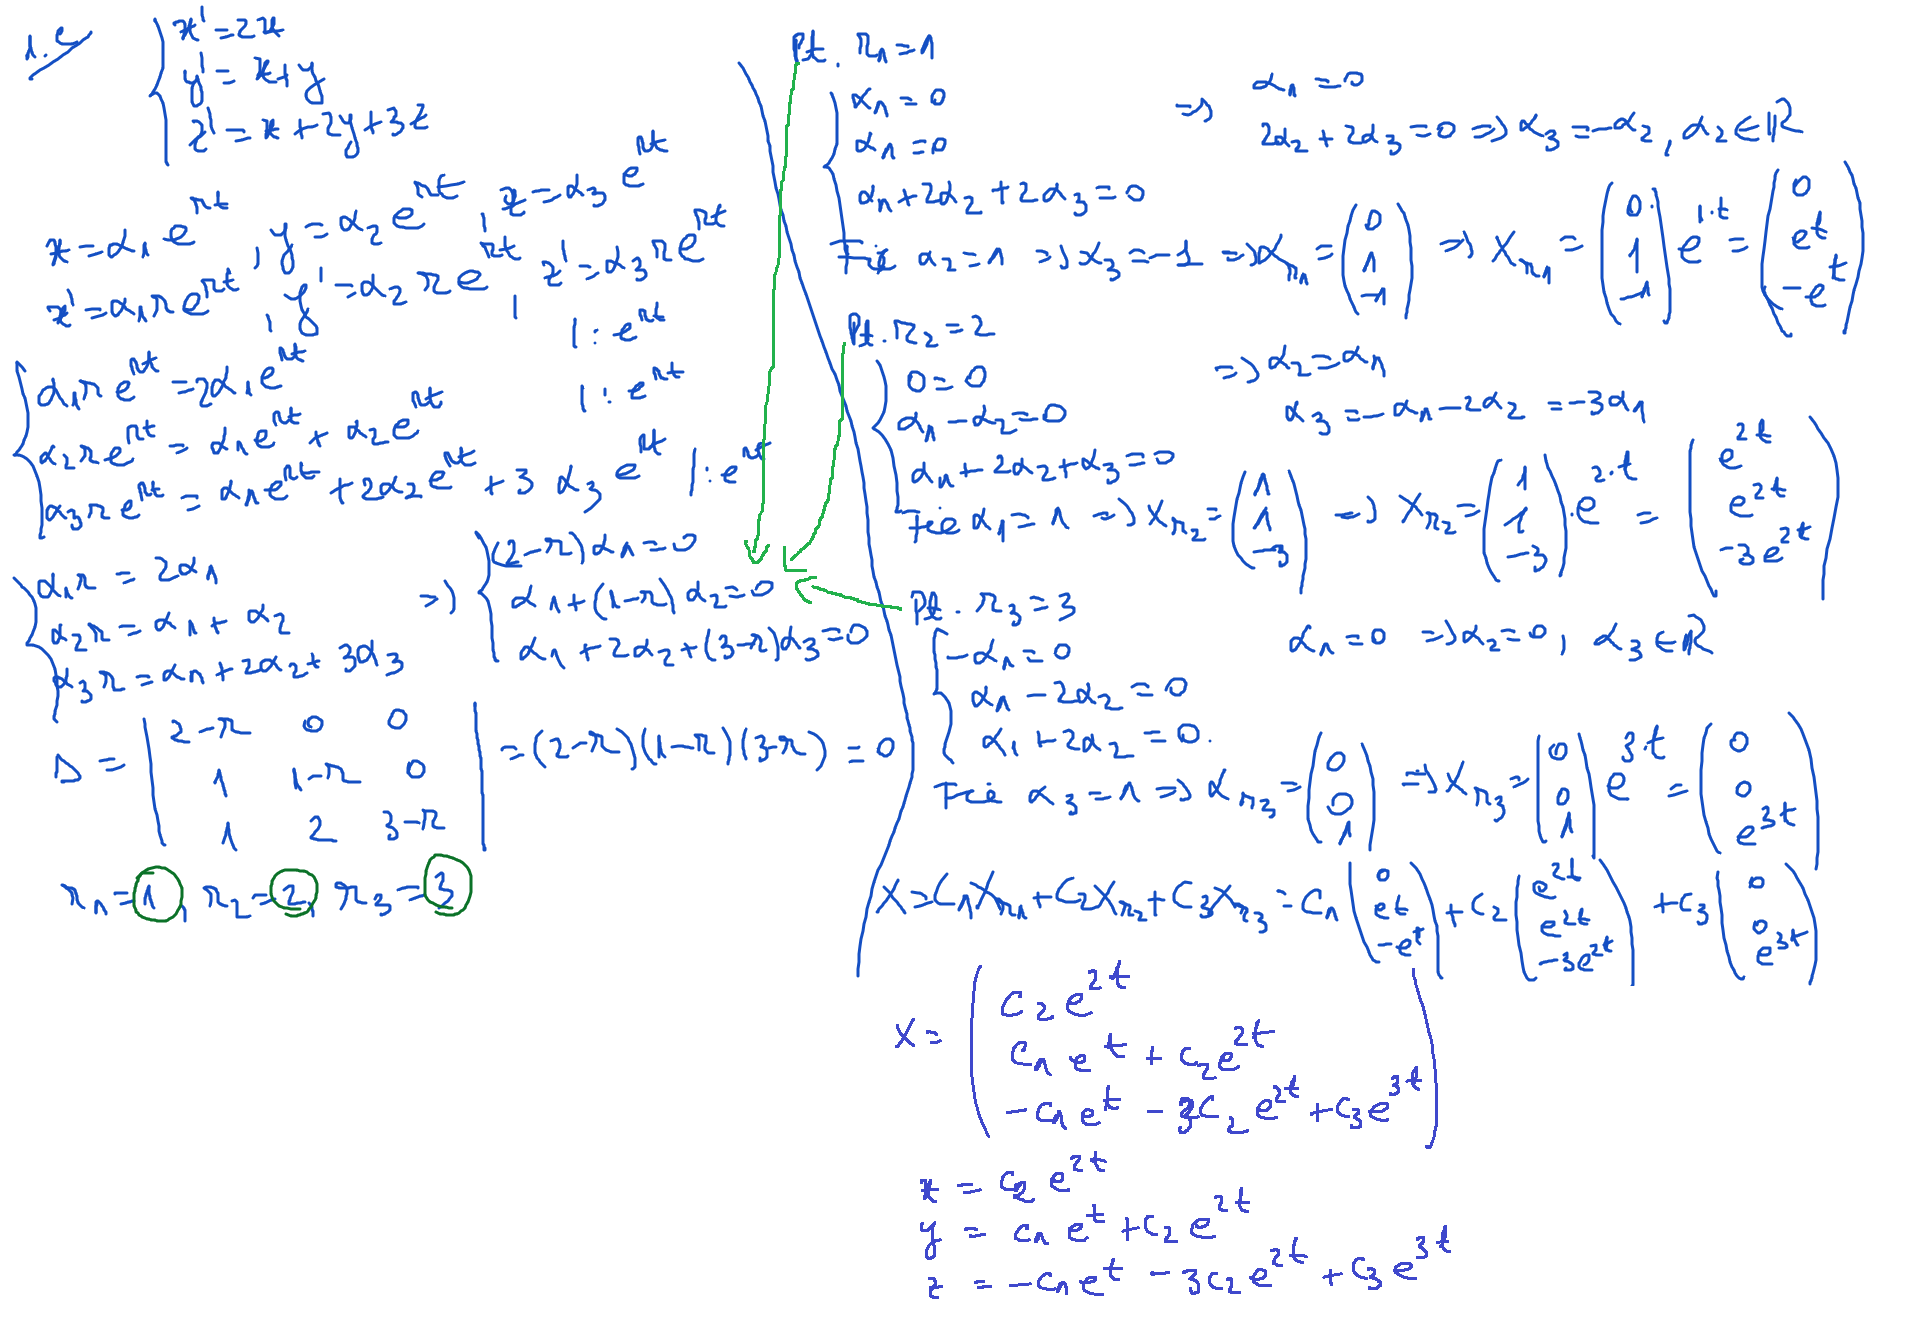 1.c
x' = 2x
y' = x+y
z' = x+2y+3z
x = α₁e^{rt}, y = α₂e^{rt}, z = α₃e^{rt}
x' = α₁re^{rt}, y' = α₂re^{rt}, z' = α₃re^{rt}
α₁re^{rt} = 2α₁e^{rt} |: e^{rt}
α₂re^{rt} = α₁e^{rt} + α₂e^{rt} |: e^{rt}
α₃re^{rt} = α₁e^{rt} + 2α₂e^{rt} + 3α₃e^{rt} |: e^{rt}
α₁r = 2α₁
α₂r = α₁ + α₂
α₃r = α₁ + 2α₂ + 3α₃
=> (2-r)α₁ = 0
α₁ + (1-r)α₂ = 0
α₁ + 2α₂ + (3-r)α₃ = 0
Δ = | 2-r 0 0 |
| 1 1-r 0 | = (2-r)(1-r)(3-r) = 0
| 1 2 3-r |
r₁ = 1, r₂ = 2, r₃ = 3
Pt. r₁ = 1
α₁ = 0
α₁ = 0
α₁ + 2α₂ + 2α₃ = 0
=> α₁ = 0
2α₂ + 2α₃ = 0 => α₃ = -α₂, α₂ ∈ ℝ
Fie α₂ = 1 => α₃ = -1 => α_{r₁} = (0 1 -1) => X_{r₁} = (0 1 -1) e^{1·t} = (0 e^t -e^t)
Pt. r₂ = 2
0 = 0
α₁ - α₂ = 0
α₁ + 2α₂ + α₃ = 0
=> α₂ = α₁
α₃ = -α₁ - 2α₂ = -3α₁
Fie α₁ = 1 => X_{r₂} = (1 1 -3) => X_{r₂} = (1 1 -3) · e^{2·t} = (e^{2t} e^{2t} -3e^{2t})
Pt. r₃ = 3
-α₁ = 0
α₁ - 2α₂ = 0
α₁ + 2α₂ = 0.
α₁ = 0 => α₂ = 0, α₃ ∈ ℝ
Fie α₃ = 1 => α_{r₃} = (0 0 1) => X_{r₃} = (0 0 1) e^{3·t} = (0 0 e^{3t})
X = C₁X_{r₁} + C₂X_{r₂} + C₃X_{r₃} = C₁ (0 e^t -e^t) + C₂ (e^{2t} e^{2t} -3e^{2t}) + C₃ (0 0 e^{3t})
X = ( C₂e^{2t}
C₁e^t + C₂e^{2t}
-C₁e^t - 3C₂e^{2t} + C₃e^{3t} )
x = C₂e^{2t}
y = C₁e^t + C₂e^{2t}
z = -C₁e^t - 3C₂e^{2t} + C₃e^{3t}